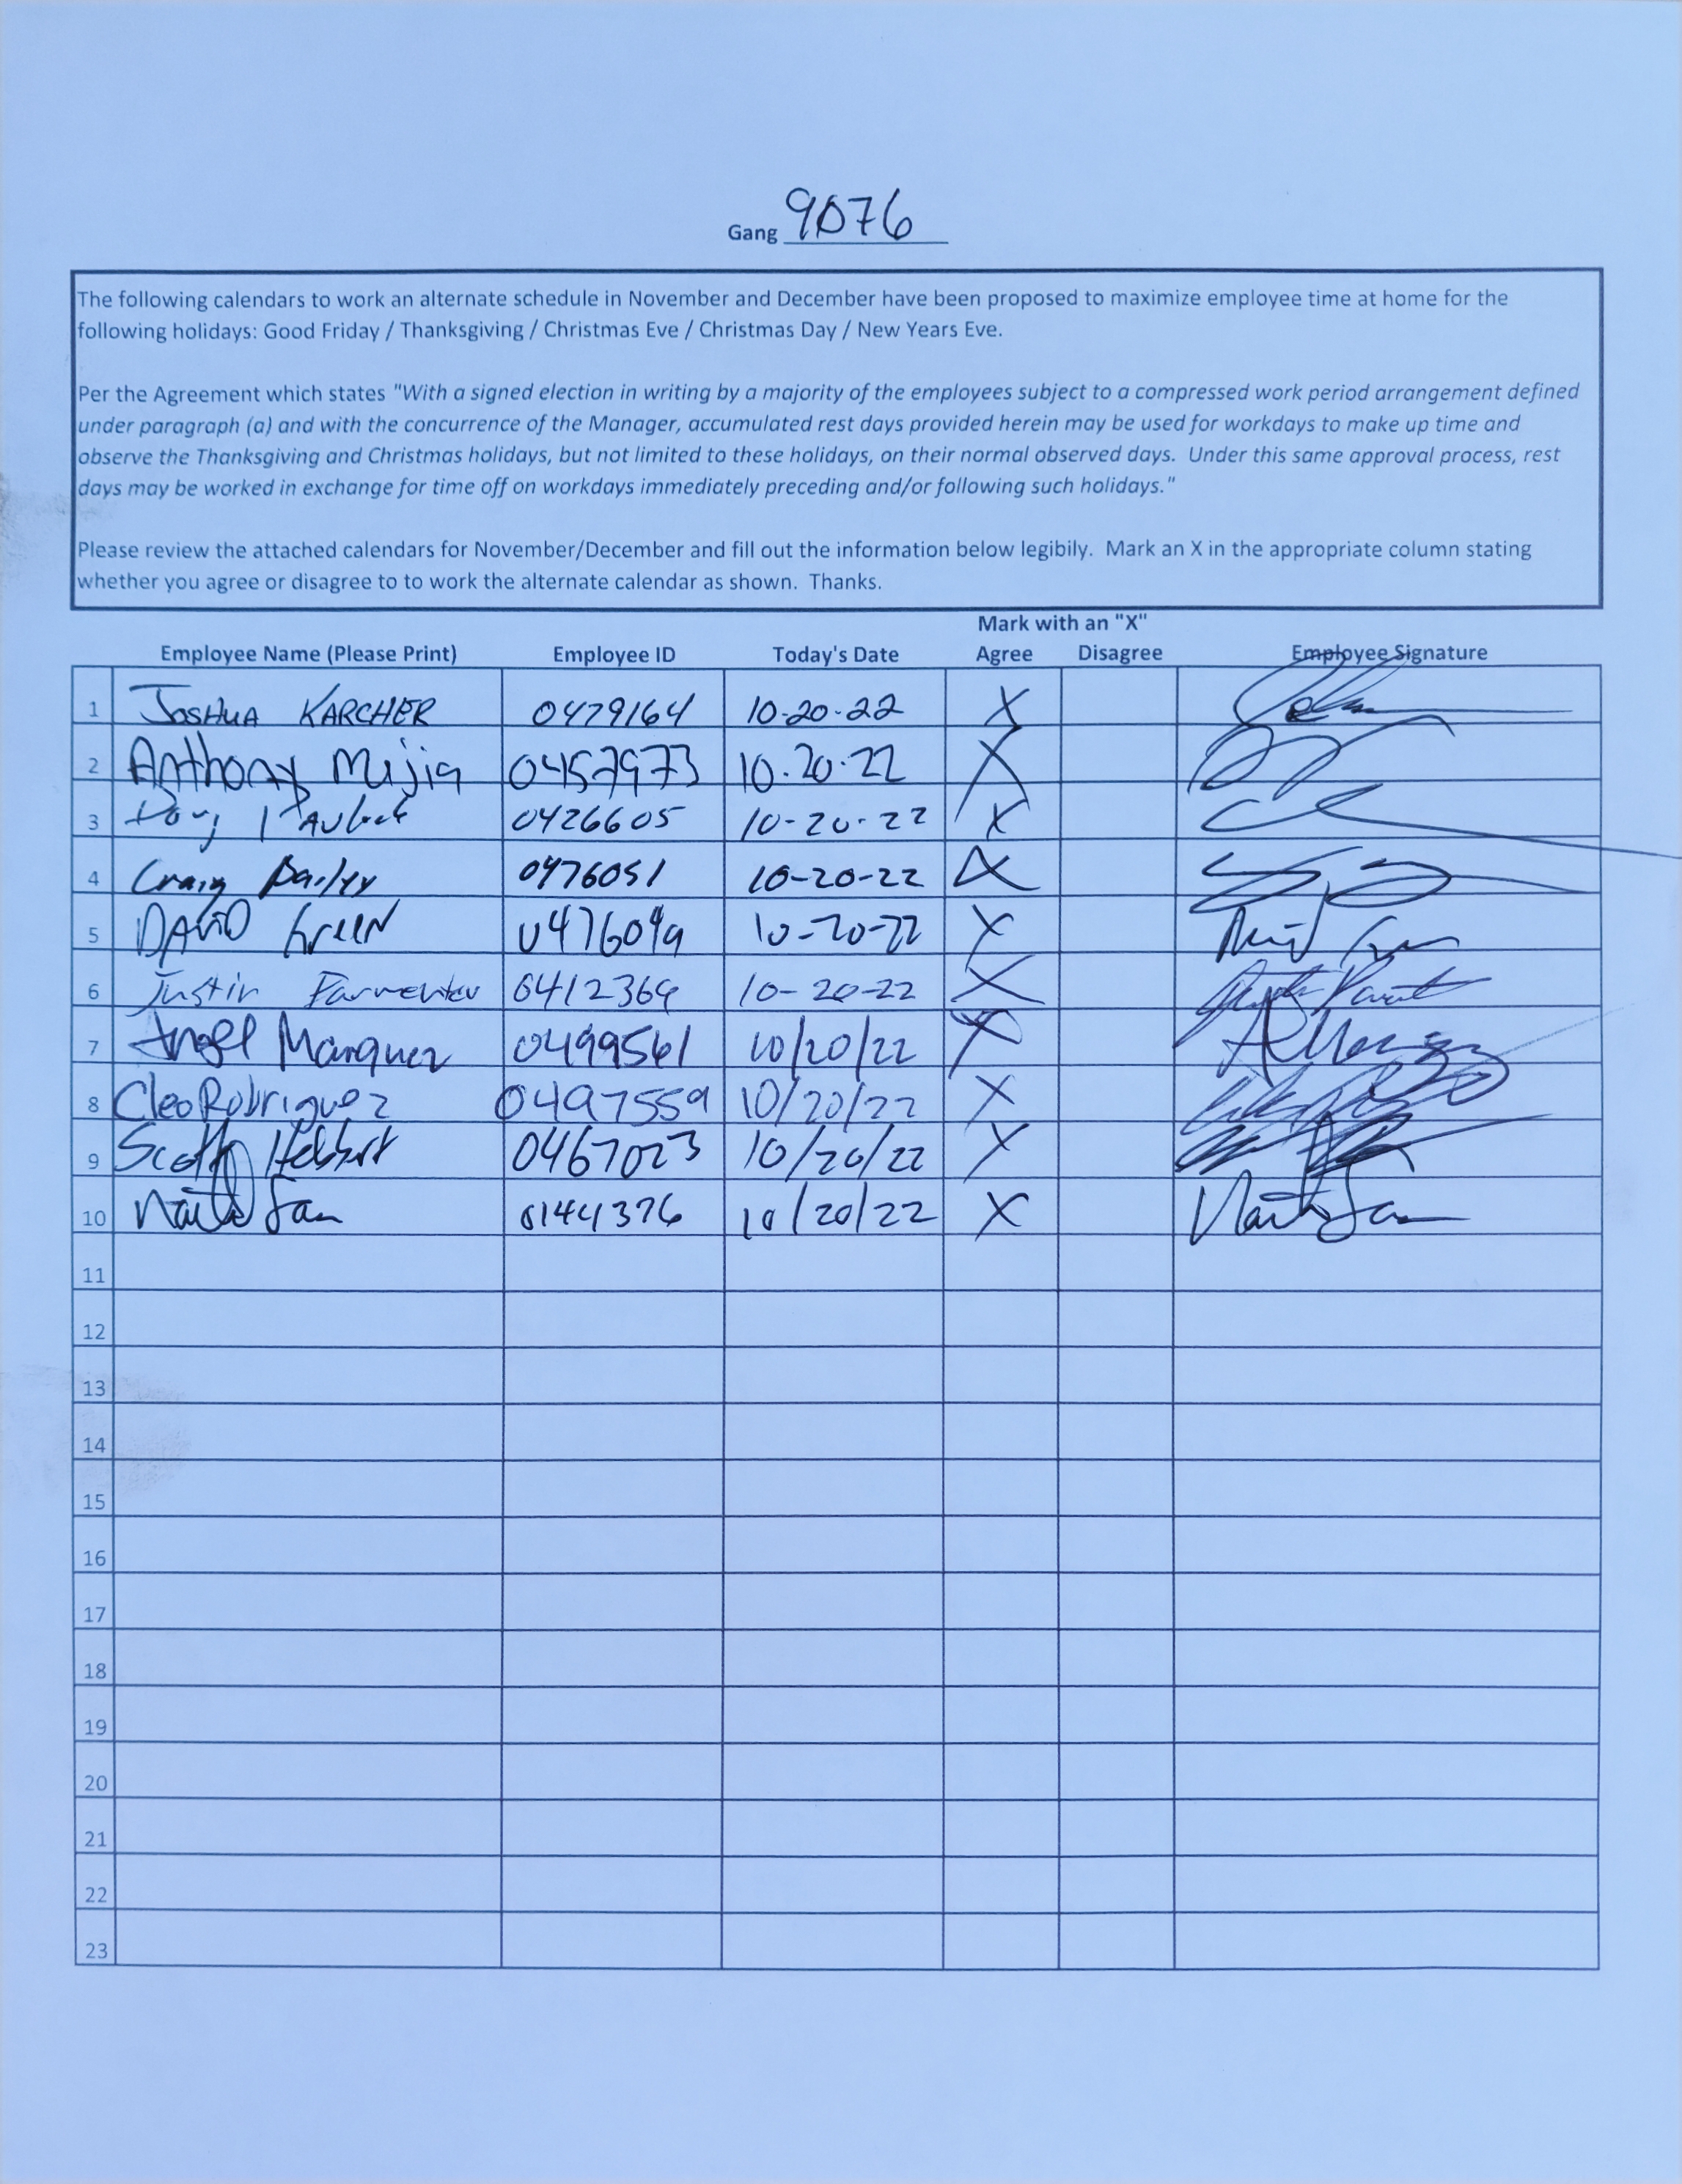 Gang 9076
The following calendars to work an alternate schedule in November and December have been proposed to maximize employee time at home for the
following holidays: Good Friday / Thanksgiving / Christmas Eve / Christmas Day / New Years Eve.
Per the Agreement which states "With a signed election in writing by a majority of the employees subject to a compressed work period arrangement defined
under paragraph (a) and with the concurrence of the Manager, accumulated rest days provided herein may be used for workdays to make up time and
observe the Thanksgiving and Christmas holidays, but not limited to these holidays, on their normal observed days. Under this same approval process, rest
days may be worked in exchange for time off on workdays immediately preceding and/or following such holidays."
Please review the attached calendars for November/December and fill out the information below legibily. Mark an X in the appropriate column stating
whether you agree or disagree to to work the alternate calendar as shown. Thanks.
Mark with an "X"
Employee Name (Please Print) Employee ID Today's Date Agree Disagree Employee Signature
1 JOSHUA KARCHER 0479164 10-20-22 X
2 Anthony Mijia 0457973 10-20-22 X
3 0426605 10-20-22 X
4 Craig Bailey 0476051 10-20-22 X
5 DAVID GREEN 0476049 10-20-22 X
6 Justin Parmenter 0412369 10-20-22 X
7 Angel Marquez 0499561 10/20/22 X
8 Cleo Rodriguez 0497559 10/20/22 X
9 Scott Hebbert 0467023 10/20/22 X
10 0144376 10/20/22 X
11
12
13
14
15
16
17
18
19
20
21
22
23